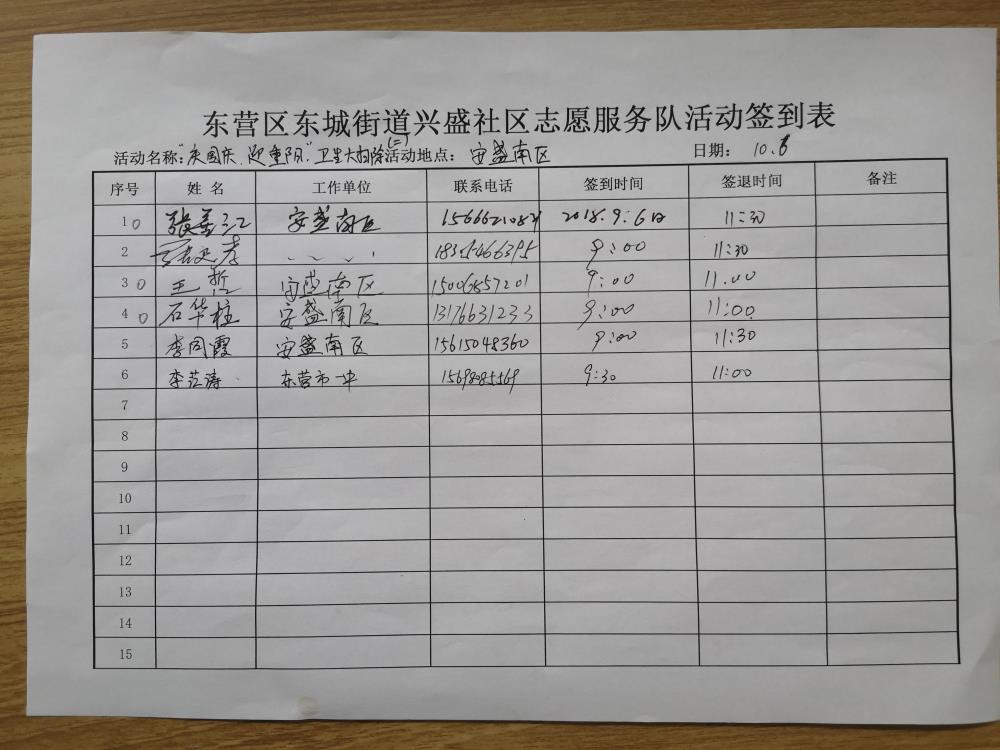 东营区东城街道兴盛社区志愿服务队活动签到表
活动名称:"庆国庆、迎重阳"卫生大扫除(二) 活动地点: 安盛南区 日期: 10.6
序号 姓名 工作单位 联系电话 签到时间 签退时间 备注
1 安盛南区 2018.9.6日 11:30
2 18354466395 9:00 11:30
3 王哲 安盛南区 15006557201 9:00 11.00
4 石华柱 安盛南区 13176631233 9:00 11:00
5 李同霞 安盛南区 15615048360 9:00 11:30
6 李范涛 东营市一中 15698085569 9:30 11:00
7
8
9
10
11
12
13
14
15